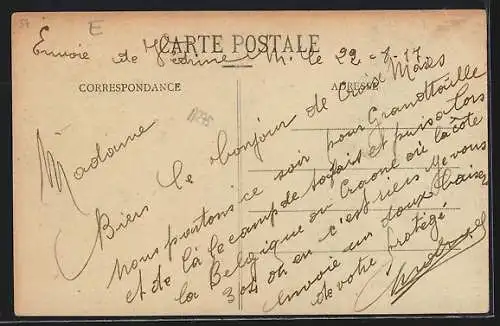 57 E
Envoie de Védrine M. le 22-1-17
CARTE POSTALE
CORRESPONDANCE
ADRESSE
Madame
Bien le bonjour de Croix Mares
nous partons ce soir pour Grandfouille
et de là le camp de et puis alors
la Belgique ou Craone ou la côte
304 on en c'est rien Je vous
envoie un doux baiser
de votre protégé